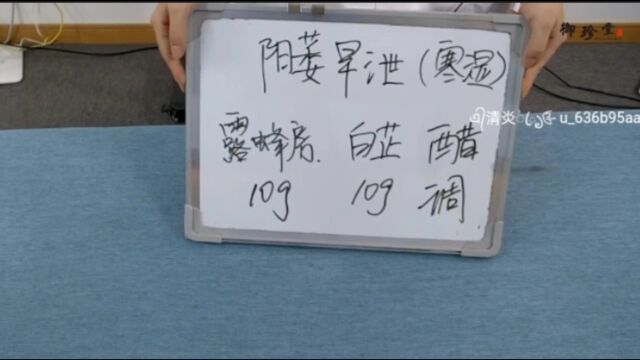 御珍堂
阳萎早泄(寒湿)
清炎 u_636b95aa
露蜂房、白芷 醋
10g 10g 调